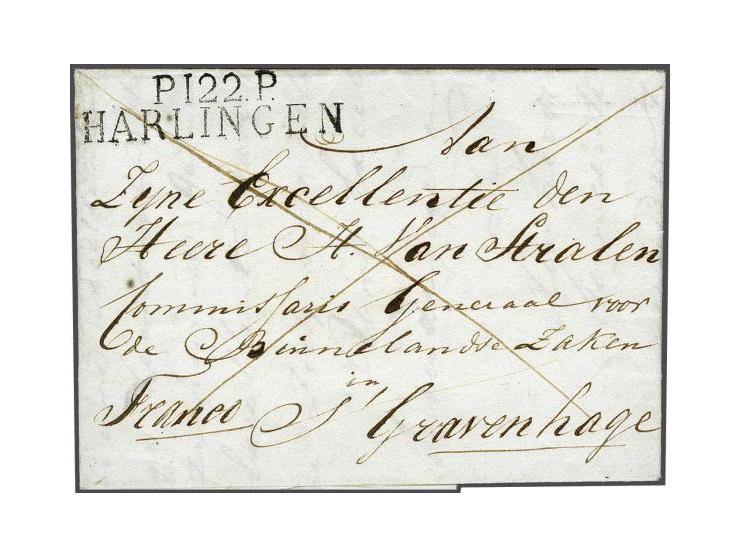 P122.P.
HARLINGEN
Aan
Zyne Excellentie den
Heere H. Van Stralen
Commissaris Generaal voor
de Binnelandse Zaken
in
Franco S' Gravenhage